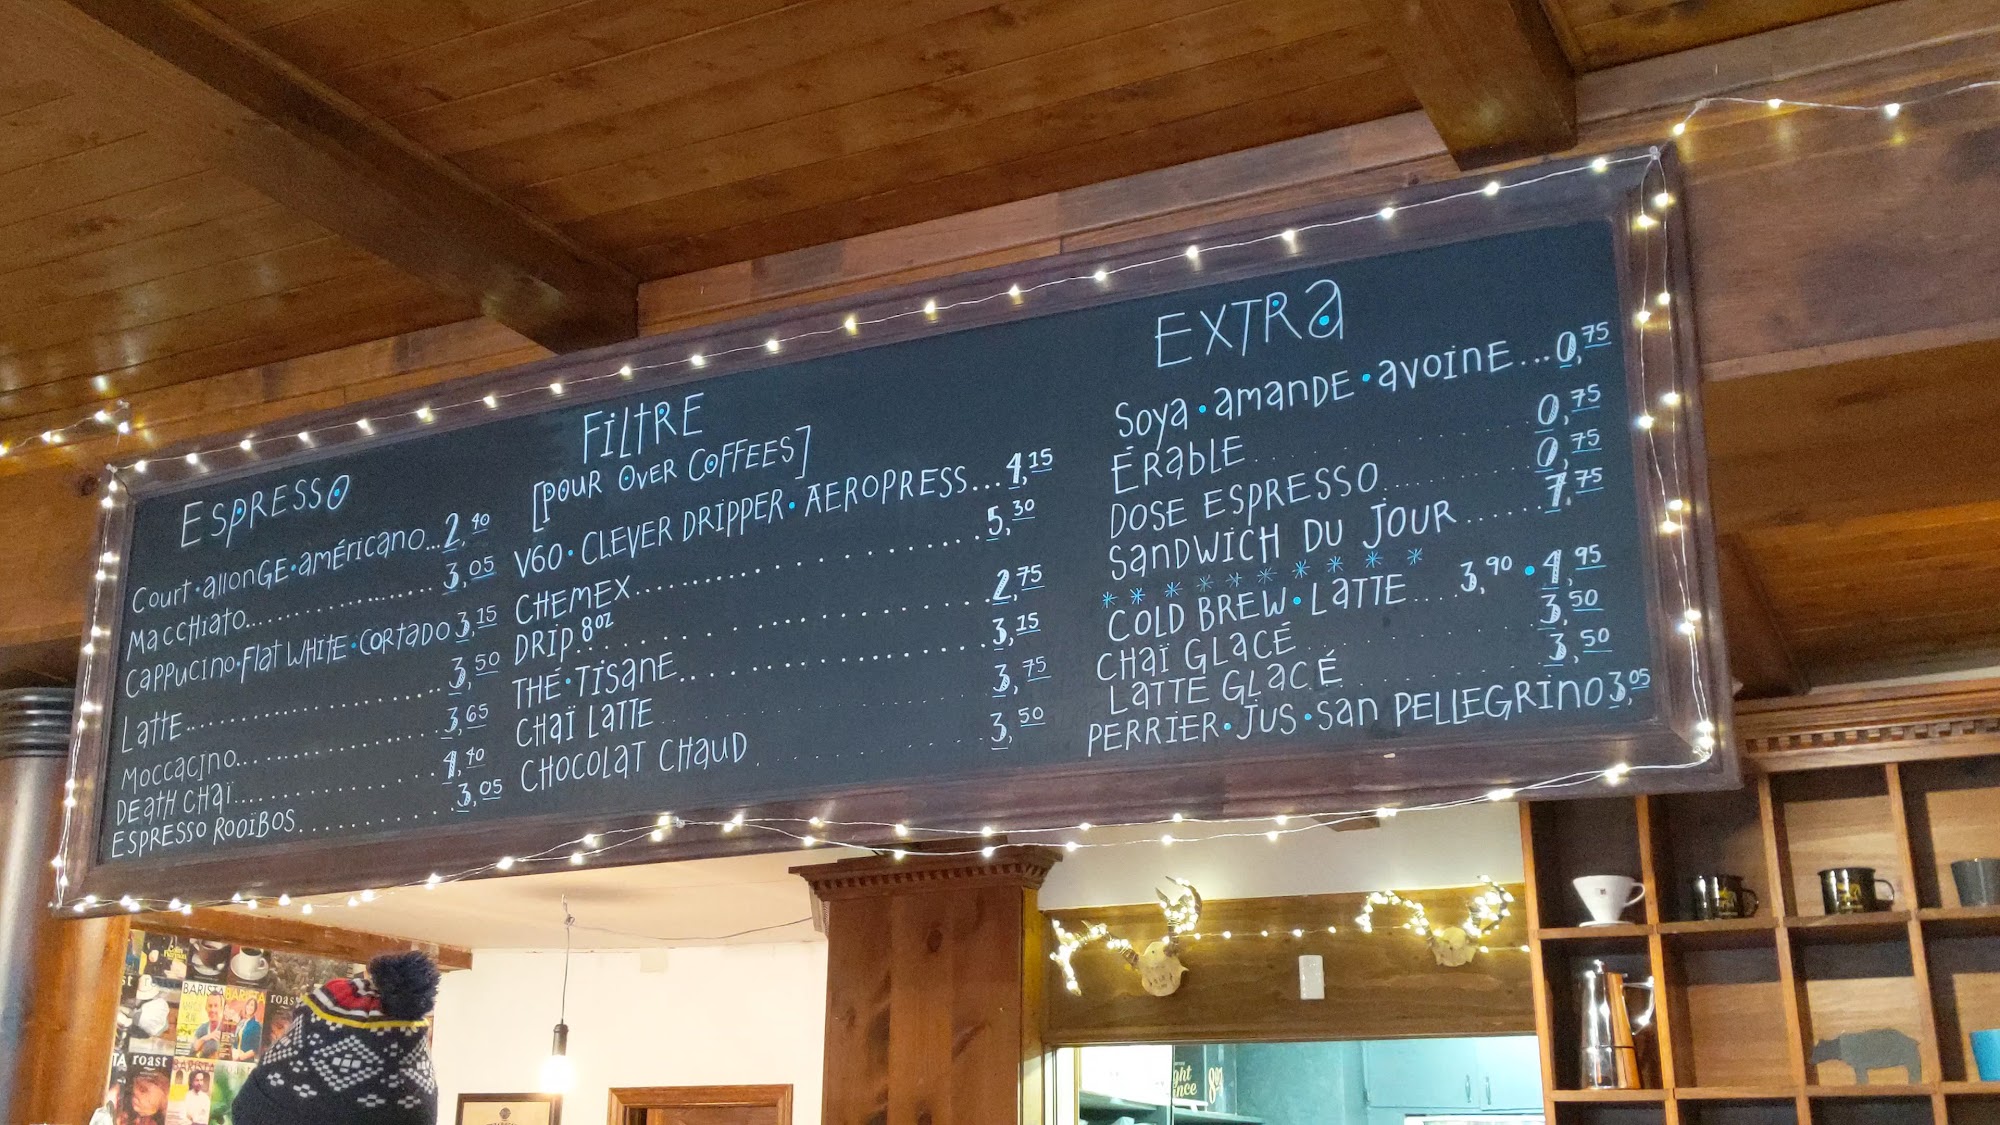 ESPRESSO
Court • allonGE • américano...2,40
Macchiato.....................3,05
Cappucino • Flat WHITE • CORTADO 3,15
Latte.........................3,50
Moccacino.....................3,65
DEatH CHaï....................4,40
ESPRESSO ROOïBOS..............3,05
FiLtRE
[POUR OVER COFFEES]
V60 • CLEVER DRIPPER • AEROPRESS...4,15
CHEMEX........................5,30
DRIP 8oz......................2,75
THÉ • TISANE..................3,15
CHAï LATTE....................3,75
CHOCOLAT CHAUD................3,50
EXTRa
Soya • amande • avoine...0,75
ÉRaBLE........................0,75
DOSE ESPRESSO.................0,75
SanDWICH DU JOUR..............7,75
* * * * * * * * * *
COLD BREW • LATTE....3,90 • 4,95
CHAï GLACÉ....................3,50
LATTE GLACÉ...................3,50
PERRIER • JUS • San PELLEGRINO 3,05
BARISTA
BARISTA
roast
roast